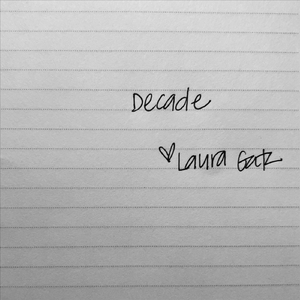 Decade
♡Laura Gatz